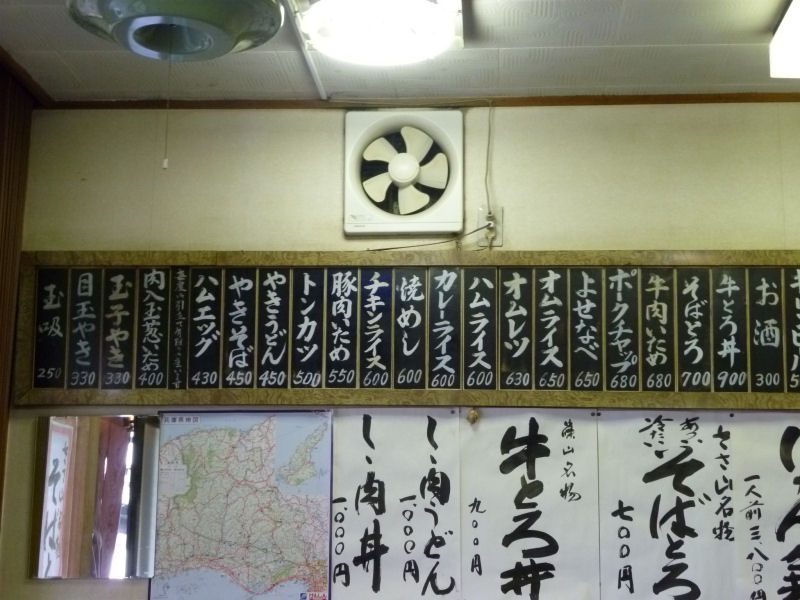 お酒 300
牛とろ丼 900
そばとろ 700
牛肉いため 680
ポークチャップ 680
よせなべ 650
オムライス 650
オムレツ 630
ハムライス 600
カレーライス 600
焼めし 600
チキンライス 600
豚肉いため 550
トンカツ 500
やきうどん 450
やきそば 450
ハムエッグ 430
肉入玉葱いため 400
玉子やき 330
目玉やき 330
玉吸 250
一人前 三、八00円
ささ山名物
あつい
冷たい
そばとろ
七00円
篠山名物
牛とろ丼
九00円
しゝ肉うどん
1,000円
しゝ肉丼
1,000円
兵庫県地図